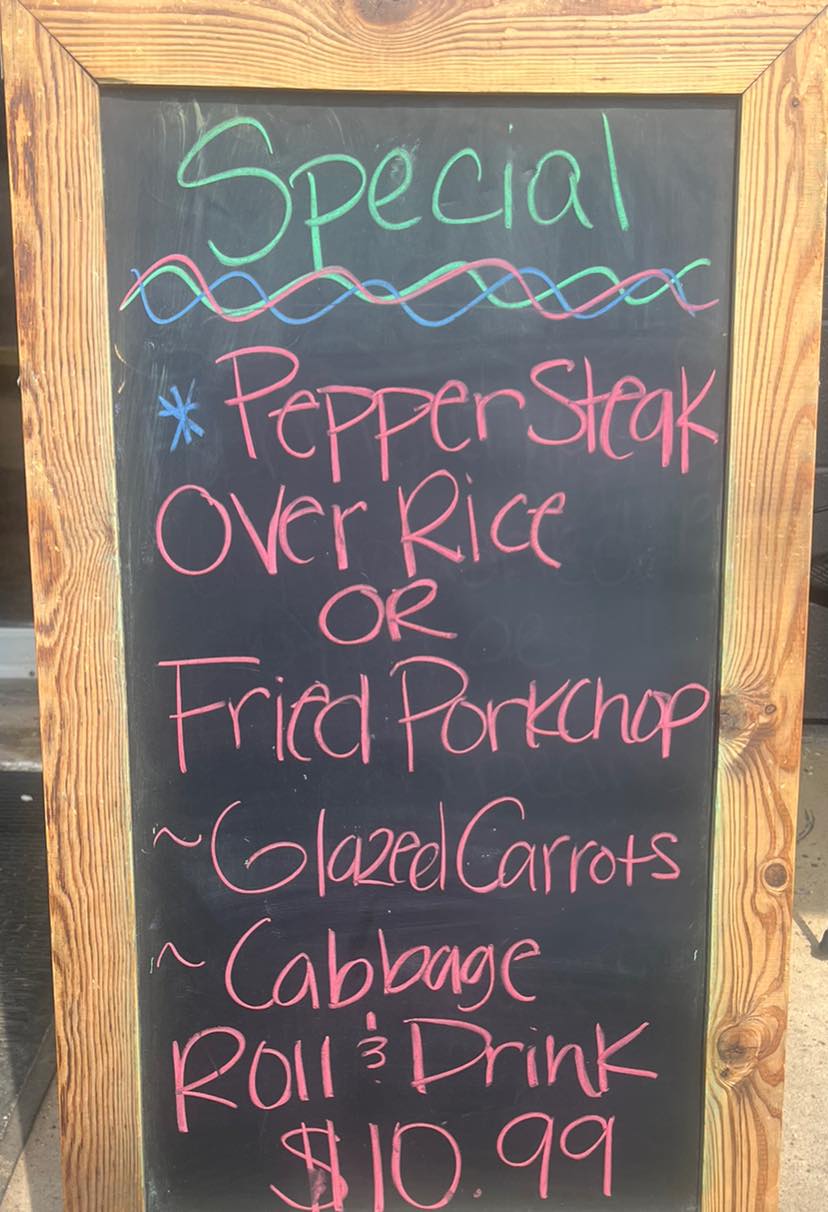 Special
* Pepper Steak
Over Rice
OR
Fried Porkchop
~ Glazed Carrots
~ Cabbage
Roll & Drink
$10.99